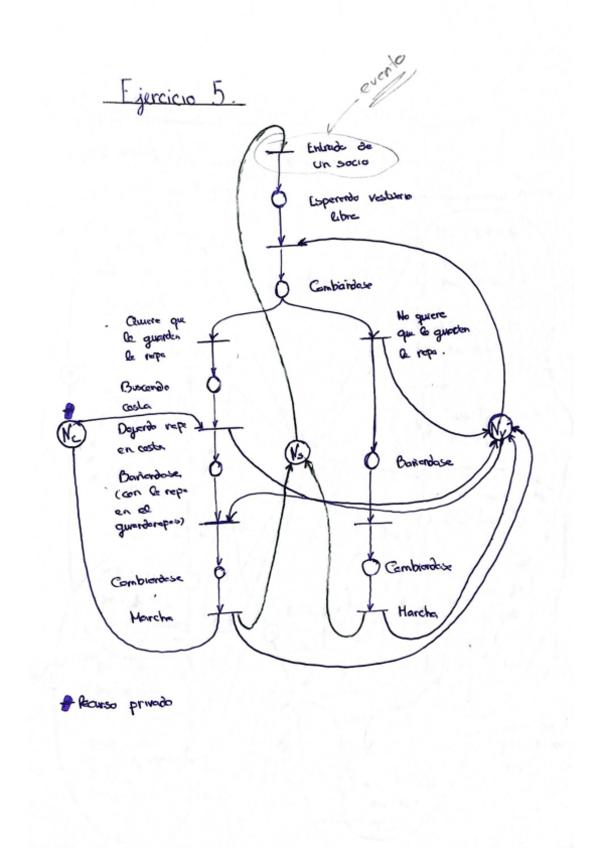 Ejercicio 5.
evento
Entrada de
un socio
Esperando vestuario
libre
Cambiándose
Quiere que
le guarden
la ropa
No quiere
que le guarden
la ropa.
Buscando
cesta
Dejando ropa
en cesta
Nc
Ns
Nv
Bañandose
Bañandose,
(con la ropa
en el
guardaropas)
Cambiandose
Cambiandose
Marcha
Marcha
Recurso privado